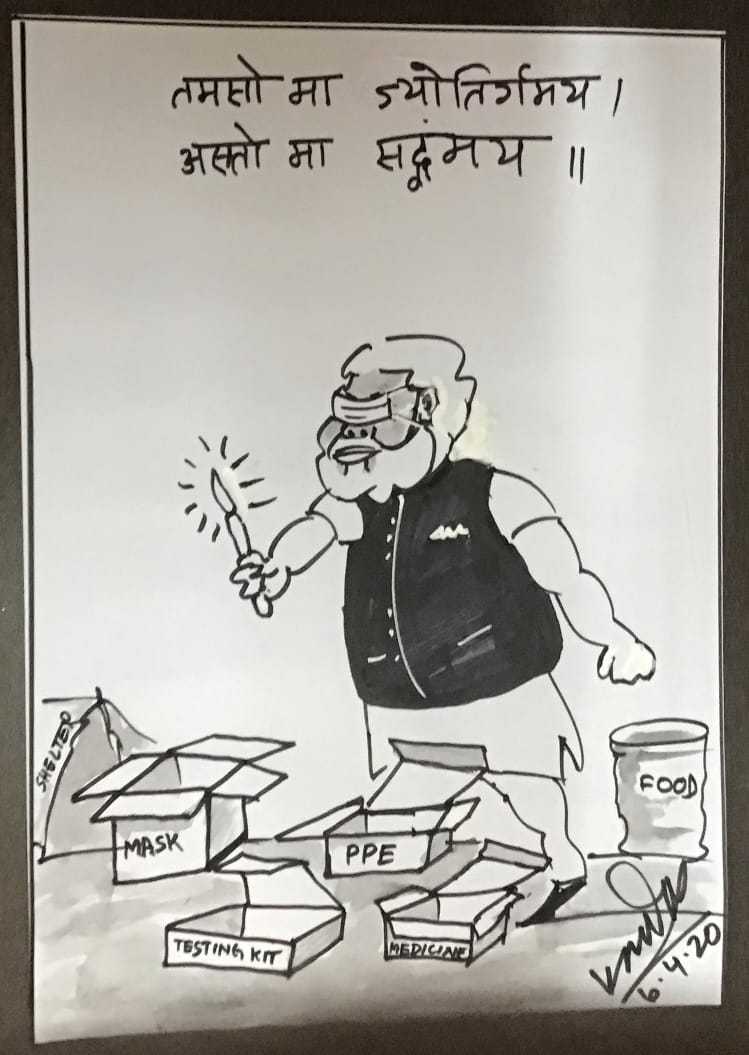 तमसो मा ज्योतिर्गमय।
अस्तो मा सद्गंमय॥
SHELTER
MASK
PPE
FOOD
TESTING KIT
MEDICINE
6.4.20